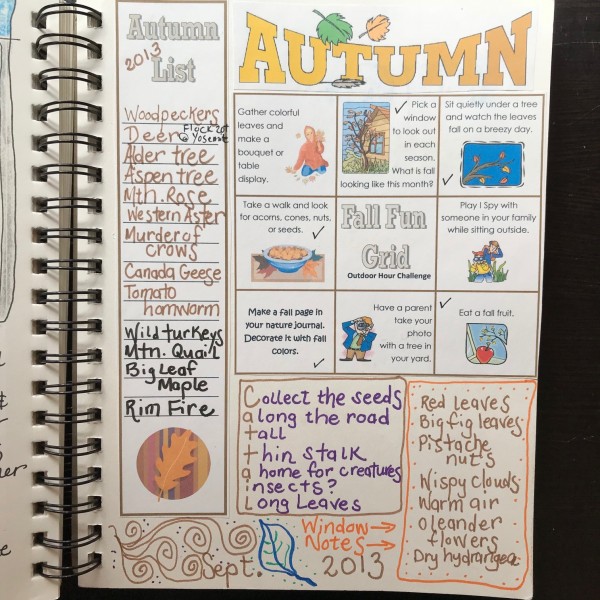 Autumn
2013
List
Woodpeckers
Deer Flock 20+
@ Yosemite
Alder tree
Aspen tree
Mtn. Rose
Western Aster
Murder of
crows
Canada Geese
Tomato
hornworm
Wild turkeys
Mtn. Quail
Big Leaf
Maple
Rim Fire
AUTUMN
Gather colorful
leaves and
make a
bouquet or
table
display.
✓ Pick a
window
to look out
in each
season.
What is fall
looking like this month?
Sit quietly under a tree
and watch the leaves
fall on a breezy day.
✓
Take a walk and look
for acorns, cones, nuts,
or seeds. ✓
Fall Fun
Grid
Outdoor Hour Challenge
Play I Spy with
someone in your family
while sitting outside.
Make a fall page in
your nature journal.
Decorate it with fall
colors. ✓
Have a parent
take your
photo
with a tree in
your yard.
✓
Eat a fall fruit.
Collect the seeds
along the road
tall
thin stalk
a home for creatures
insects?
Long Leaves
Red leaves
Big fig leaves
Pistache
nuts
Wispy clouds
Warm air
Oleander
flowers
Dry hydrangea
Window →
Notes →
Sept. 2013